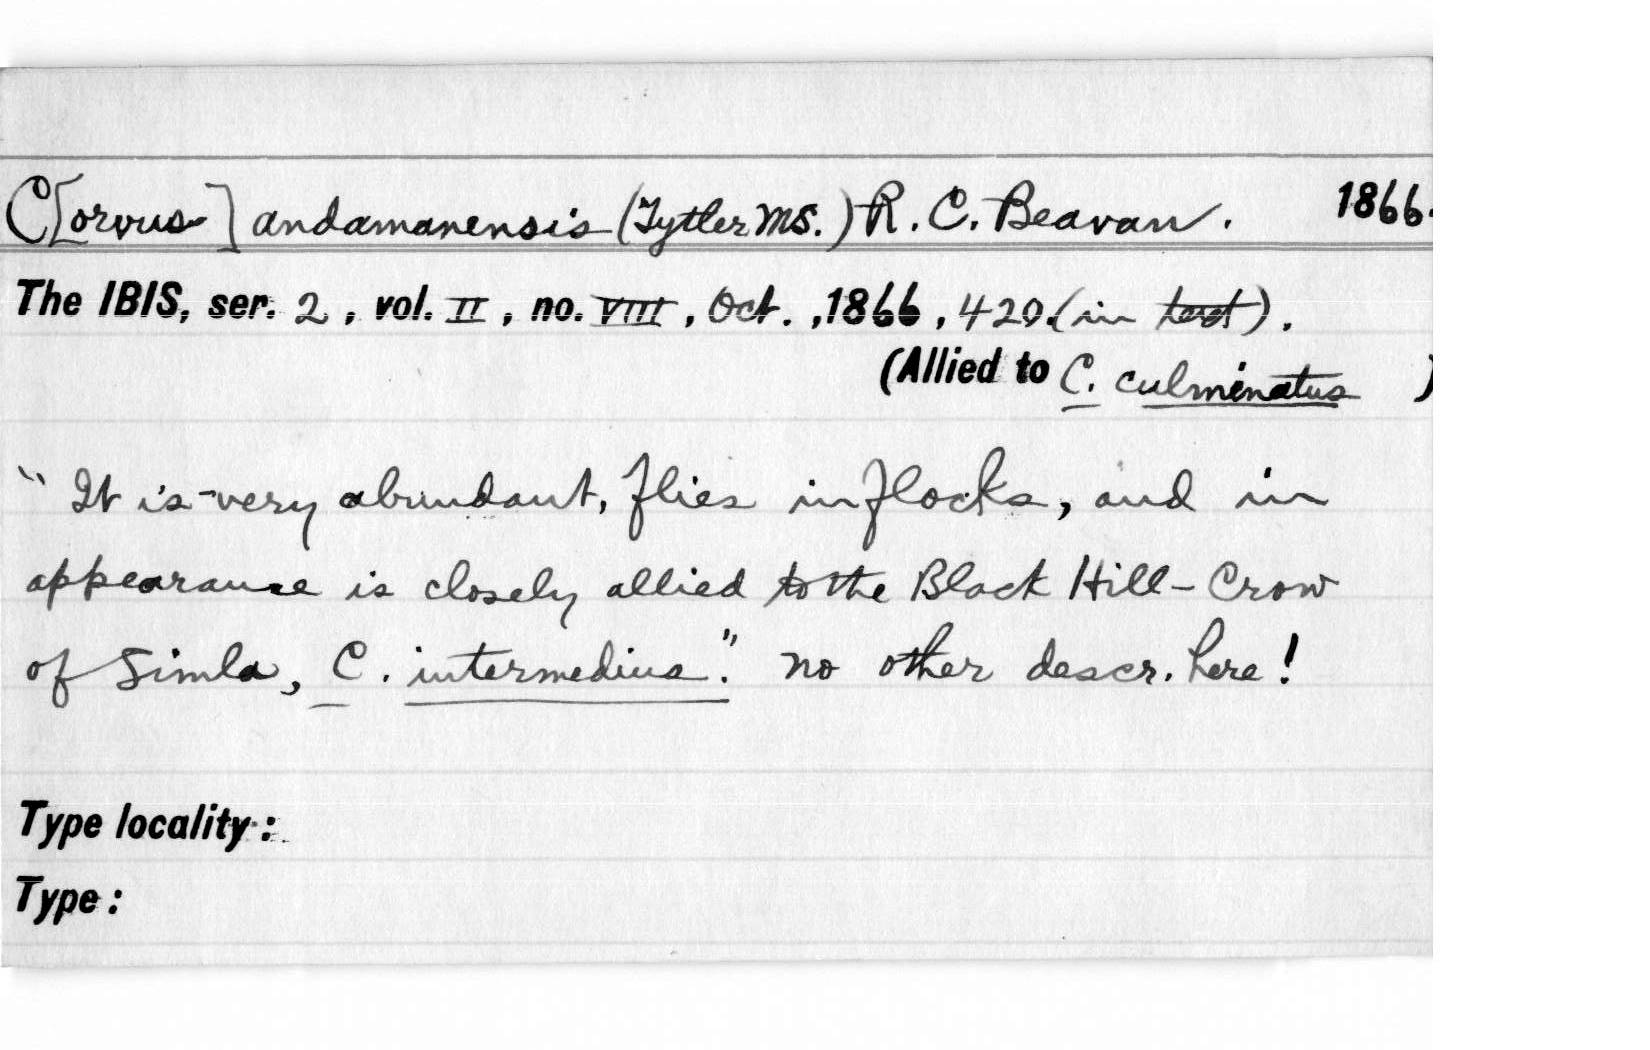 C[orvus] andamanensis (Tytler MS.) R. C. Beavan. 1866.
The IBIS, ser. 2, vol. II, no. VIII, Oct., 1866, 420. (in text).
(Allied to C. culminatus )
"It is very abundant, flies in flocks, and in
appearance is closely allied to the Black Hill-Crow
of Simla, C. intermedius." no other descr. here!
Type locality:
Type: